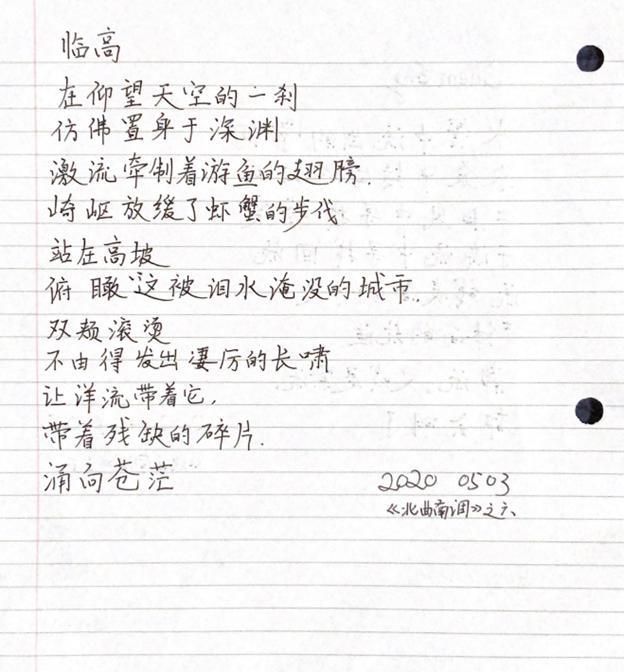 临高
在仰望天空的一刹
仿佛置身于深渊
激流牵制着游鱼的翅膀.
崎岖放缓了虾蟹的步伐
站在高坡
俯瞰这被泪水淹没的城市.
双颊滚烫
不由得发出凄厉的长啸
让洋流带着它,
带着残缺的碎片.
涌向苍茫
2020 0503
《北曲南调》之六